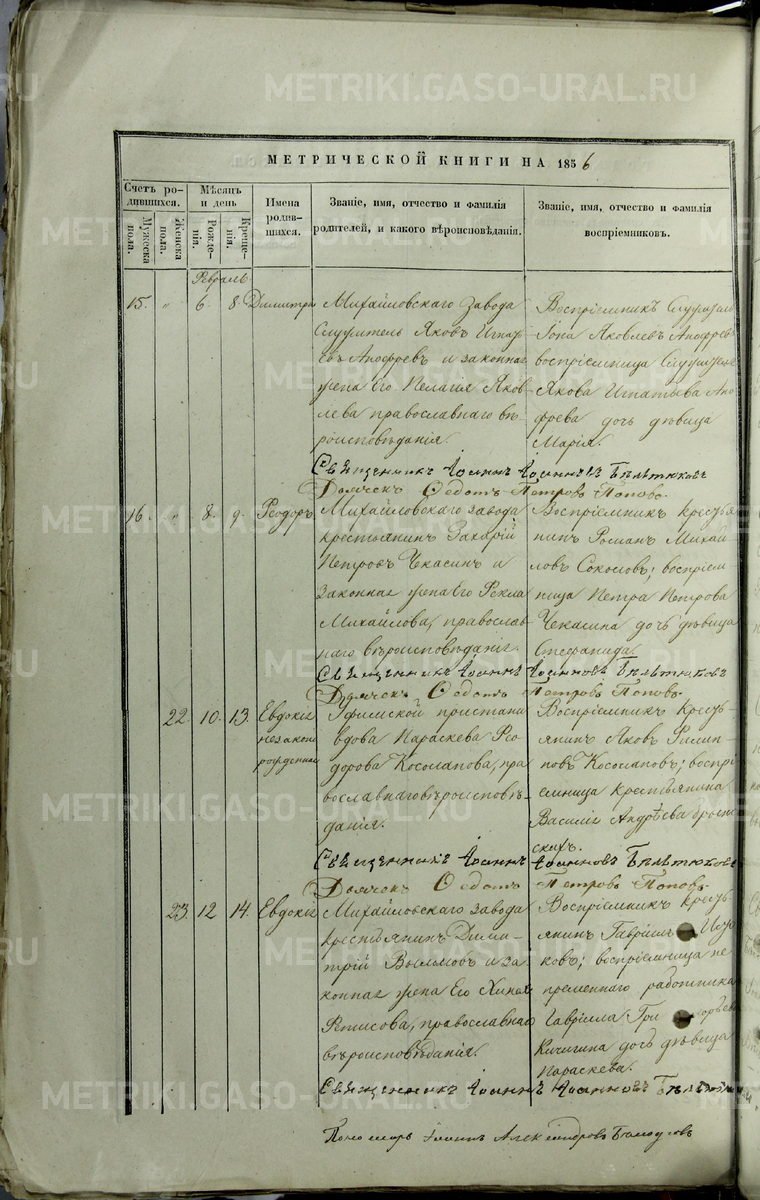 METRIKI.GASO-URAL.RU
МЕТРИЧЕСКОЙ КНИГИ НА 1856
Счетъ родившихся.
Мѣсяцъ и день
Имена родившихся.
Званіе, имя, отчество и фамилія родителей, и какого вѣроисповѣданія.
Званіе, имя, отчество и фамилія воспріемниковъ.
Мужеска пола.
Женска пола.
Рожденія.
Крещенія.
Февраль
15. " 6 8. Димитрій
Михайловскаго завода
Служитель Яковъ Игнать
евъ и законная
жена Его Пелагія Яков
лева православнаго вѣ
роисповѣданія.
Воспріемникъ
Іона Яковлевъ
воспріемница
Якова Игнатьева
дочь дѣвица
Марія.
Священникъ Іоаннъ Іоанновъ Бѣлтюковъ
Дьячекъ Федотъ Петровъ Поповъ.
16. " 8. 9. Феодоръ
Михайловскаго завода
крестьянинъ Захарій
Петровъ Чекасинъ и
законная жена Его Фекла
Михайлова, православ
наго вѣроисповѣданія.
Воспріемникъ крестья
нинъ Романъ Михай
ловъ Соколовъ; воспріем
ница Петра Петрова
Чекасина дочь дѣвица
Стефанида.
Священникъ Іоаннъ Іоанновъ Бѣлтюковъ
Дьячекъ Федотъ Петровъ Поповъ.
22. 10. 13. Евдокія
незаконно
рожденная
Уфимской пристани
вдова Параскева Фео
дорова Косолапова, пра
вославнаго вѣроисповѣ
данія.
Воспріемникъ кресть
янинъ Яковъ Филип
повъ Косолаповъ; воспрі
емница крестьянина
Василія Андрѣева
Священникъ Іоаннъ Іоанновъ Бѣлтюковъ
Дьячекъ Федотъ Петровъ Поповъ.
23. 12 14. Евдокія
Михайловскаго завода
крестьянинъ Дими
трій и за
конная жена Его
православнаго
вѣроисповѣданія.
Воспріемникъ кресть
янинъ Гавріилъ
воспріемница не
премѣннаго работника
Гавріила
Кичигина дочь дѣвица
Параскева.
Священникъ Іоаннъ Іоанновъ Бѣлтюковъ
Пономарь Александровъ